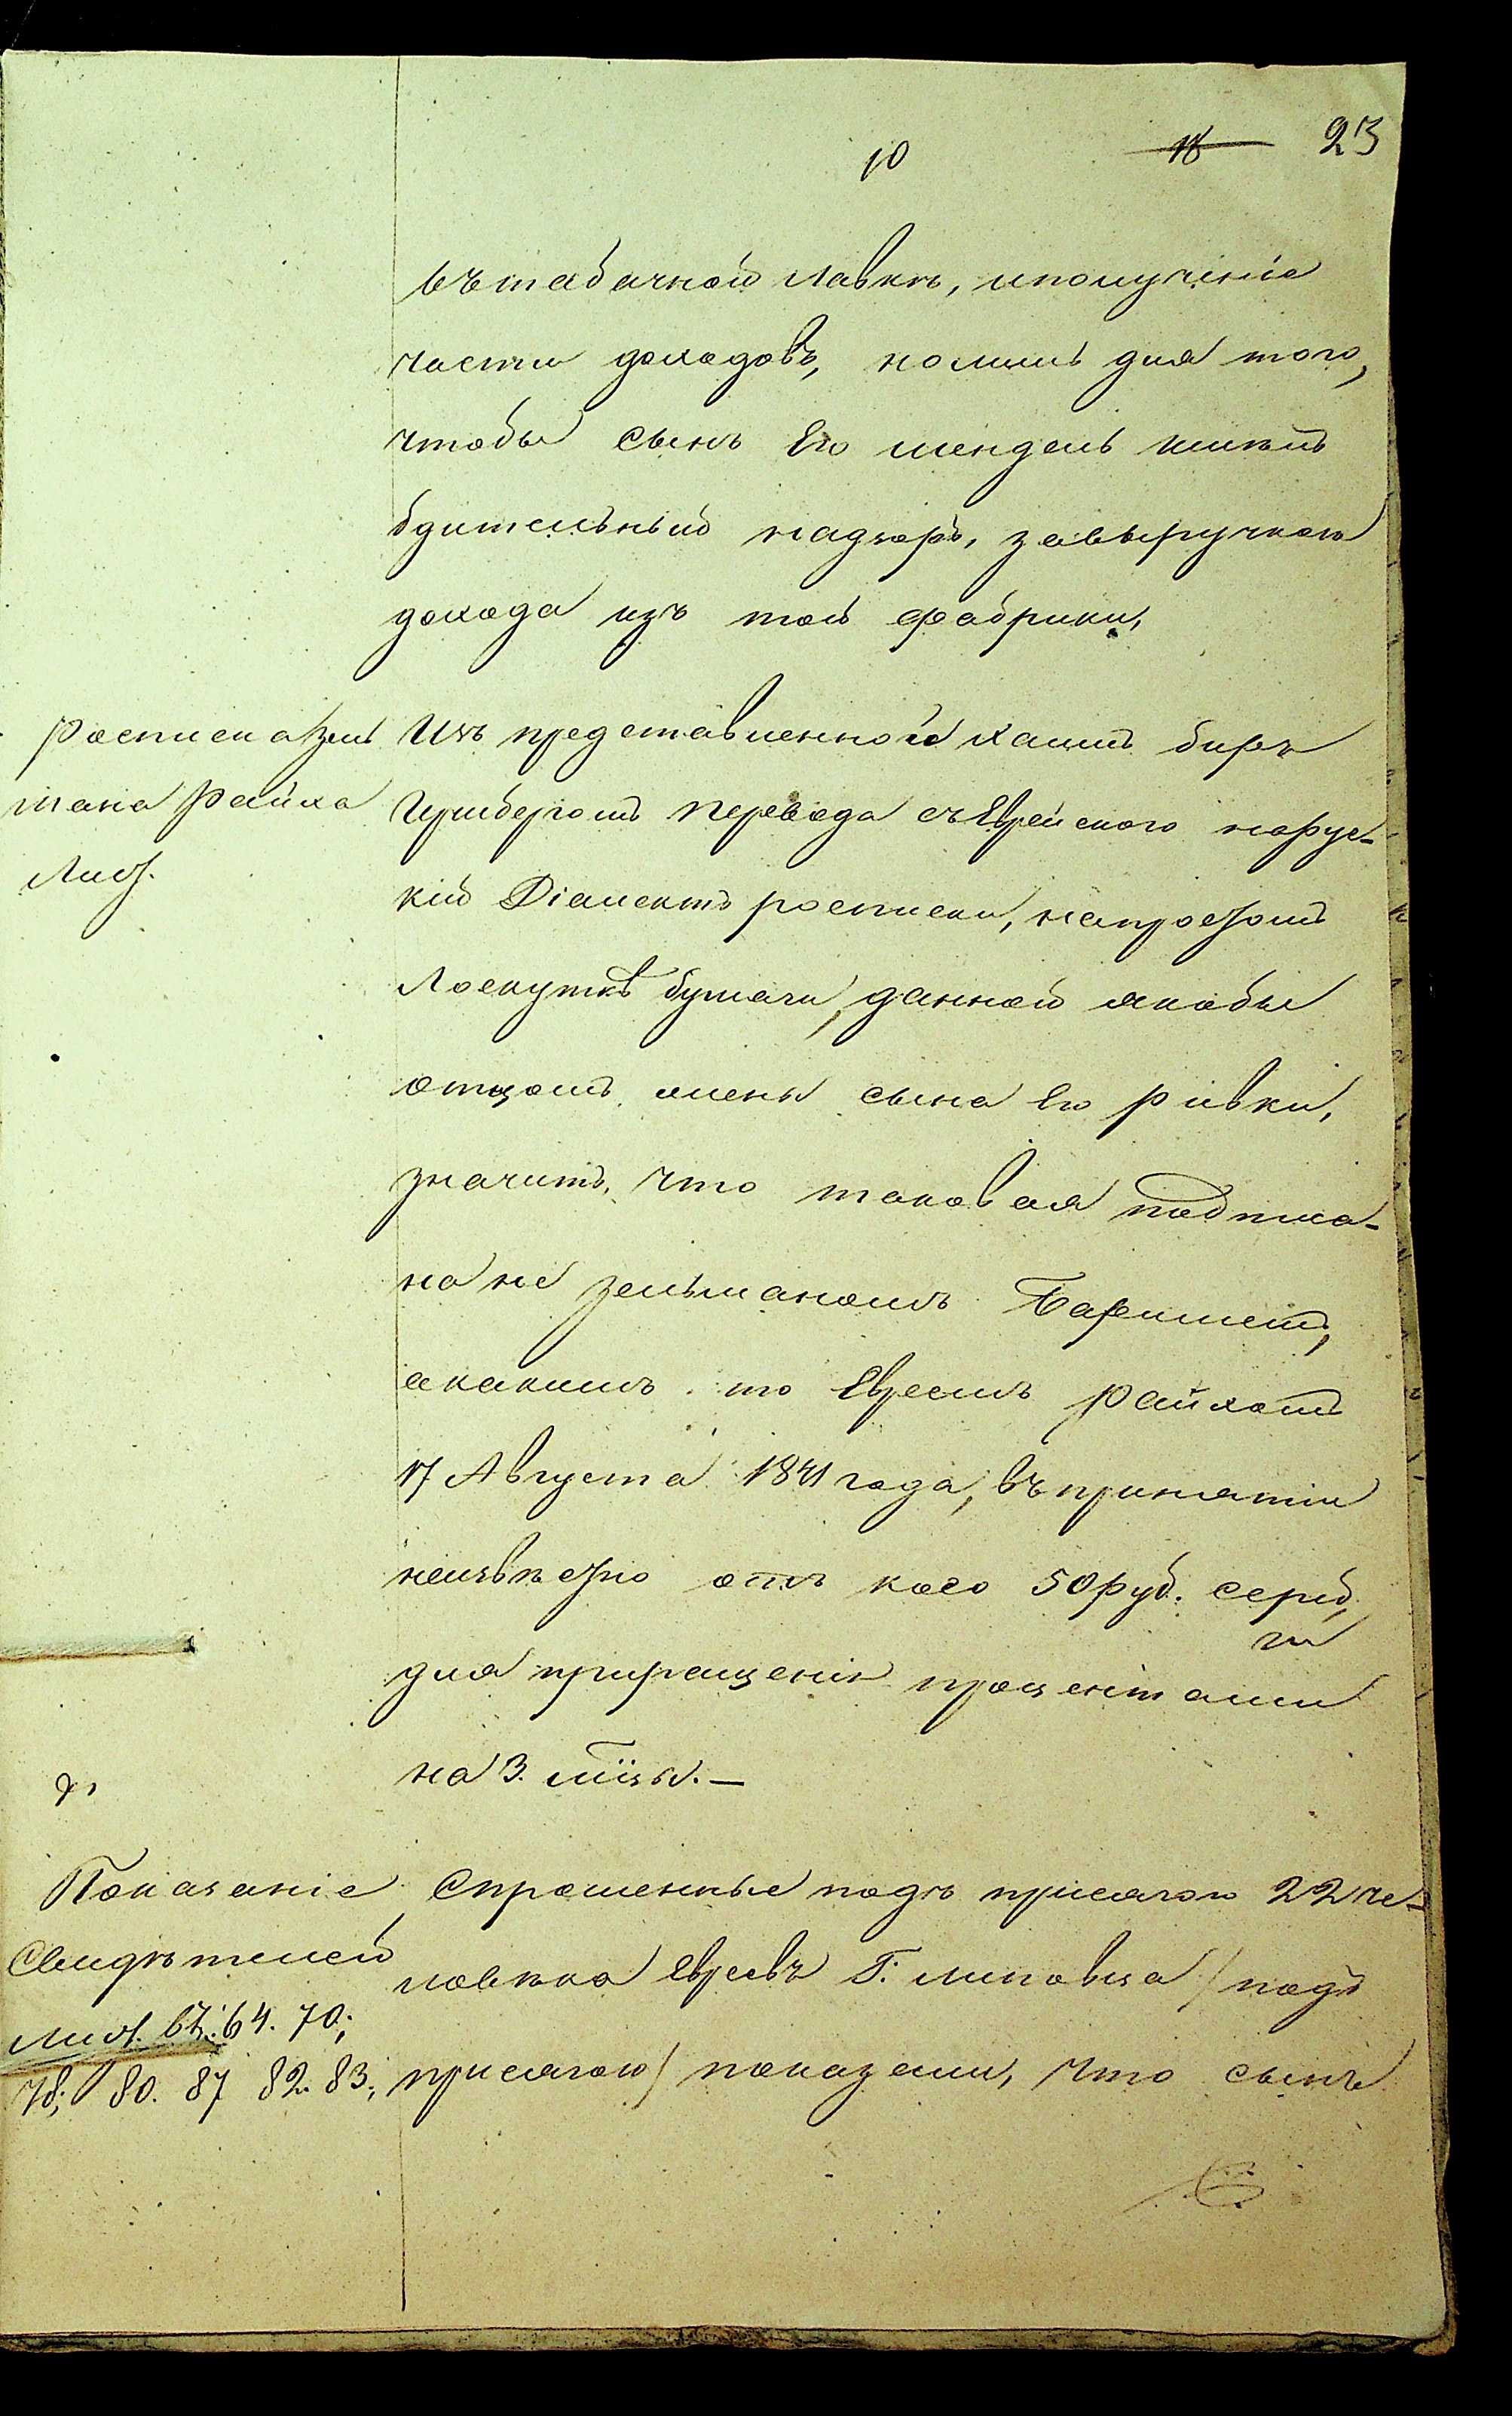 10
16
23
въ табачной лавкѣ, и полученіе
части доходовъ, но лишь для того,
чтобы сынъ Его Мендель имѣлъ
бдительный надзоръ, за выручкою
дохода изъ той фабрики,
Росписка Зель
мана Райха
Лист.
Изъ представленной Хаимъ Беръ
Гринбергомъ перевода съ Еврейского на рус-
кій Діалектъ росписки, на простомъ
Лоскуткѣ бумаги, данной якобы
отцомъ жены сына Его Ривки,
значитъ, что таковая подписа-
на не Зельманомъ Бареншет,
а какимъ то Евреемъ Райхомъ
17 Августа 1841 года, въ принятіи
неизвѣстно отъ кого 50 руб. сереб,
для приращенія процентами
на 3. мѣсяц.—
Показаніе
Свидѣтелей
Лист. 62. 64. 70;
78; 80. 87 82. 83;
Спрошенные подъ присягою 22 че-
ловѣка Евреевъ Г: Липовца / подъ
присягою / показали, что сынъ